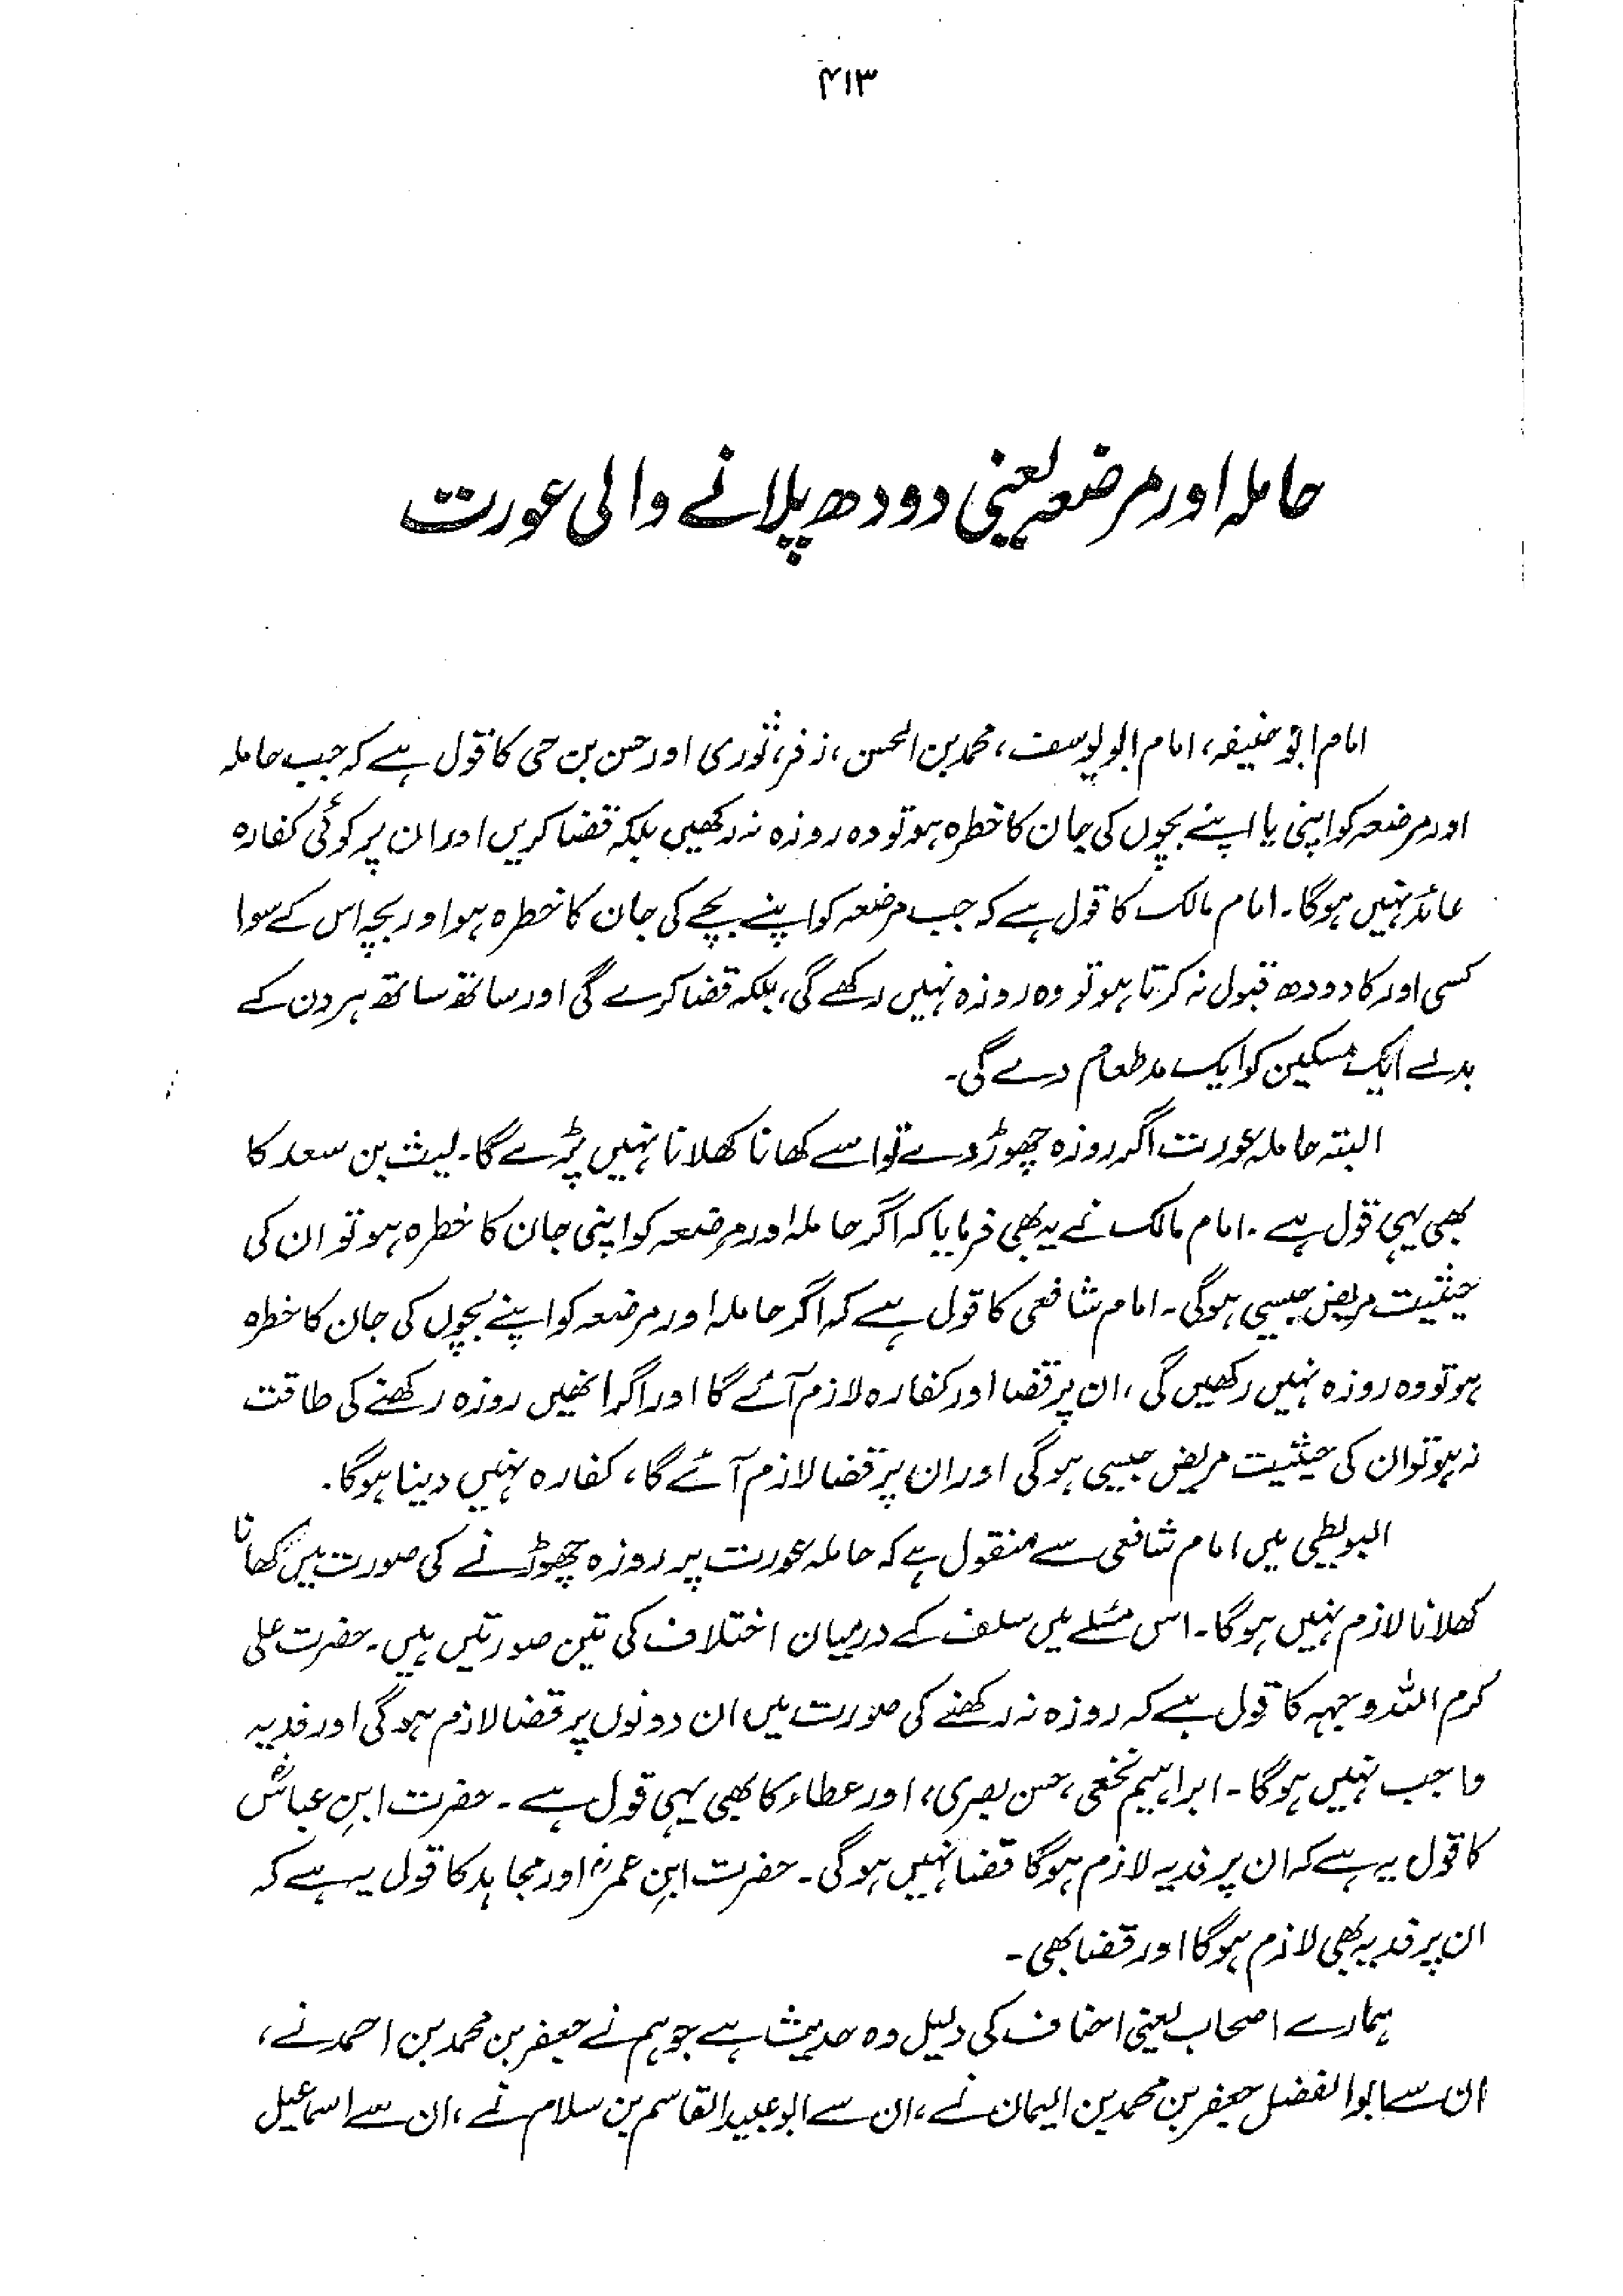 ۴۱۳
حاملہ اور مرضعہ یعنی دودھ پلانے والی عورت
امام ابوحنیفہ، امام ابویوسف، محمد بن الحسن، زفر، ثوری اور حسن بن حی کا قول ہے کہ جب حاملہ
اور مرضعہ کو اپنی یا اپنے بچوں کی جان کا خطرہ ہو تو وہ روزہ نہ رکھیں بلکہ قضا کریں اور ان پر کوئی کفارہ
عائد نہیں ہوگا۔ امام مالک کا قول ہے کہ جب مرضعہ کو اپنے بچے کی جان کا خطرہ ہو اور بچہ اس کے سوا
کسی اور کا دودھ قبول نہ کرتا ہو تو وہ روزہ نہیں رکھے گی، بلکہ قضا کرے گی اور ساتھ ساتھ ہر دن کے
بدلے ایک مسکین کو ایک مد طعام دے گی۔
البتہ حاملہ عورت اگر روزہ چھوڑ دے تو اسے کھانا کھلانا نہیں پڑے گا۔ لیث بن سعد کا
بھی یہی قول ہے۔ امام مالک نے یہ بھی فرمایا کہ اگر حاملہ اور مرضعہ کو اپنی جان کا خطرہ ہو تو ان کی
حیثیت مریض جیسی ہوگی۔ امام شافعی کا قول ہے کہ اگر حاملہ اور مرضعہ کو اپنے بچوں کی جان کا خطرہ
ہو تو وہ روزہ نہیں رکھیں گی، ان پر قضا اور کفارہ لازم آئے گا اور اگر انھیں روزہ رکھنے کی طاقت
نہ ہو تو ان کی حیثیت مریض جیسی ہوگی اور ان پر قضا لازم آئے گا، کفارہ نہیں دینا ہوگا۔
البویطی میں امام شافعی سے منقول ہے کہ حاملہ عورت پر روزہ چھوڑنے کی صورت میں کھانا
کھلانا لازم نہیں ہوگا۔ اس مسئلے میں سلف کے درمیان اختلاف کی تین صورتیں ہیں۔ حضرت علی
کرم اللہ وجہہ کا قول ہے کہ روزہ نہ رکھنے کی صورت میں ان دونوں پر قضا لازم ہوگی اور فدیہ
واجب نہیں ہوگا۔ ابراہیم نخعی، حسن بصری، اور عطاء کا بھی یہی قول ہے۔ حضرت ابنِ عباسؓ
کا قول یہ ہے کہ ان پر فدیہ لازم ہوگا قضا نہیں ہوگی۔ حضرت ابنِ عمرؓ اور مجاہد کا قول یہ ہے کہ
ان پر فدیہ بھی لازم ہوگا اور قضا بھی۔
ہمارے اصحاب یعنی احناف کی دلیل وہ حدیث ہے جو ہم نے جعفر بن محمد بن احمد نے،
ان سے ابوالفضل جعفر بن محمد بن الیمان نے، ان سے ابوعبید القاسم بن سلام نے، ان سے اسماعیل